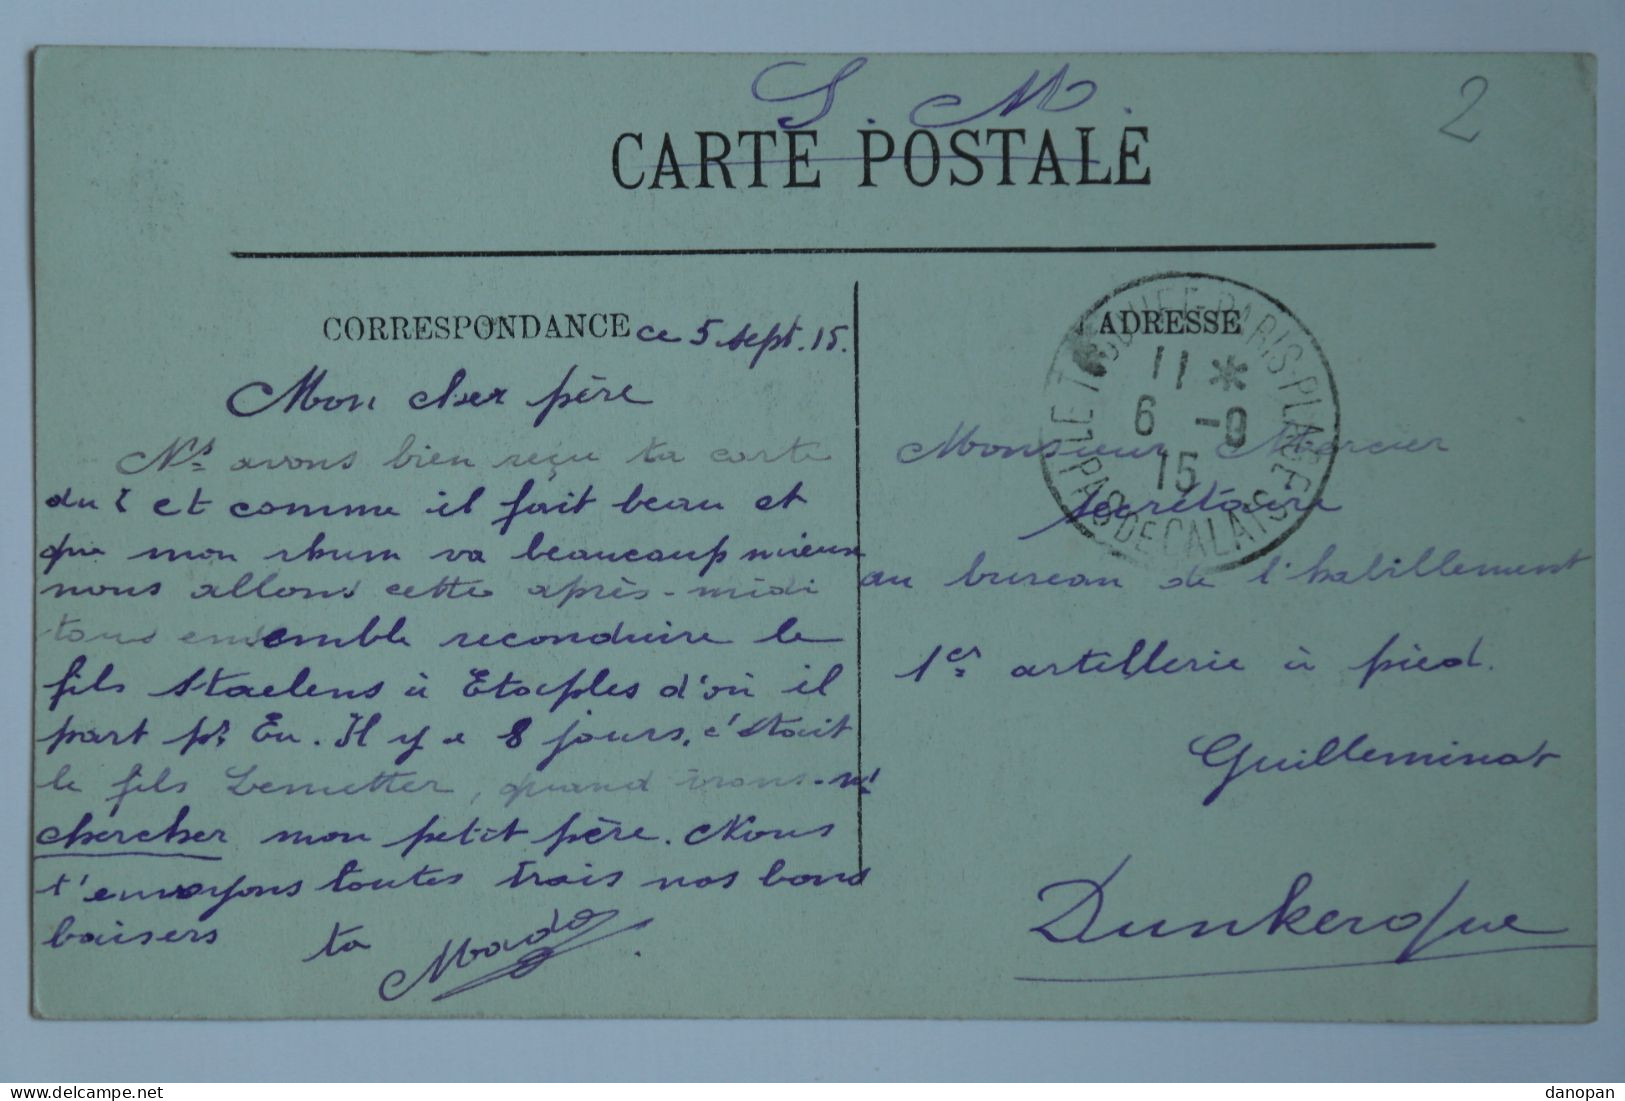 S. M.
2
CARTE POSTALE
CORRESPONDANCE
ce 5 sept. 15.
Mon cher père
Ns avons bien reçu ta carte
du 2 et comme il fait beau et
que mon rhum va beaucoup mieux
nous allons cette après-midi
tous ensemble reconduire le
fils Staelens à Etaples d'où il
part pr Eu. Il y a 8 jours, c'était
le fils Lemetter, quand irons-ns
chercher mon petit père. Nous
t'envoyons toutes trois nos bons
baisers ta Mado
ADRESSE
LE TOUQUET-PARIS-PLAGE
11 *
6 -9
15
PAS DE CALAIS
Monsieur Mercier
Secrétaire
au bureau de l'habillement
1er artillerie à pied.
Guilleminot
Dunkerque
delcampe.net
danopan